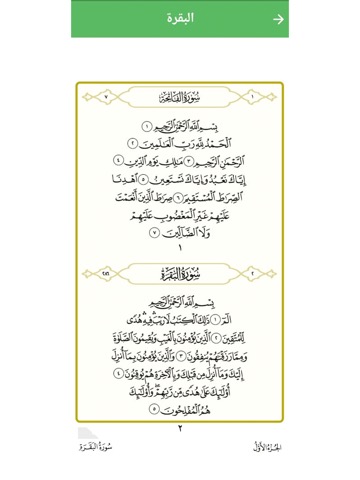 البقرة
٧ سُورَةُ الفَاتِحَةِ ١
بِسْمِ اللَّهِ الرَّحْمَٰنِ الرَّحِيمِ ١
الْحَمْدُ لِلَّهِ رَبِّ الْعَالَمِينَ ٢
الرَّحْمَٰنِ الرَّحِيمِ ٣ مَالِكِ يَوْمِ الدِّينِ ٤
إِيَّاكَ نَعْبُدُ وَإِيَّاكَ نَسْتَعِينُ ٥ اهْدِنَا
الصِّرَاطَ الْمُسْتَقِيمَ ٦ صِرَاطَ الَّذِينَ أَنْعَمْتَ
عَلَيْهِمْ غَيْرِ الْمَغْضُوبِ عَلَيْهِمْ
وَلَا الضَّالِّينَ ٧
١
سُورَةُ البَقَرَةِ ٢
بِسْمِ اللَّهِ الرَّحْمَٰنِ الرَّحِيمِ
الٓمٓ ١ ذَٰلِكَ الْكِتَابُ لَا رَيْبَ ۛ فِيهِ ۛ هُدًى
لِّلْمُتَّقِينَ ٢ الَّذِينَ يُؤْمِنُونَ بِالْغَيْبِ وَيُقِيمُونَ الصَّلَاةَ
وَمِمَّا رَزَقْنَاهُمْ يُنفِقُونَ ٣ وَالَّذِينَ يُؤْمِنُونَ بِمَا أُنزِلَ
إِلَيْكَ وَمَا أُنزِلَ مِن قَبْلِكَ وَبِالْآخِرَةِ هُمْ يُوقِنُونَ ٤
أُولَٰئِكَ عَلَىٰ هُدًى مِّن رَّبِّهِمْ ۖ وَأُولَٰئِكَ
هُمُ الْمُفْلِحُونَ ٥
٢
الجُزءُ الأَوَّلُ
سُورَةُ البَقَرَةِ